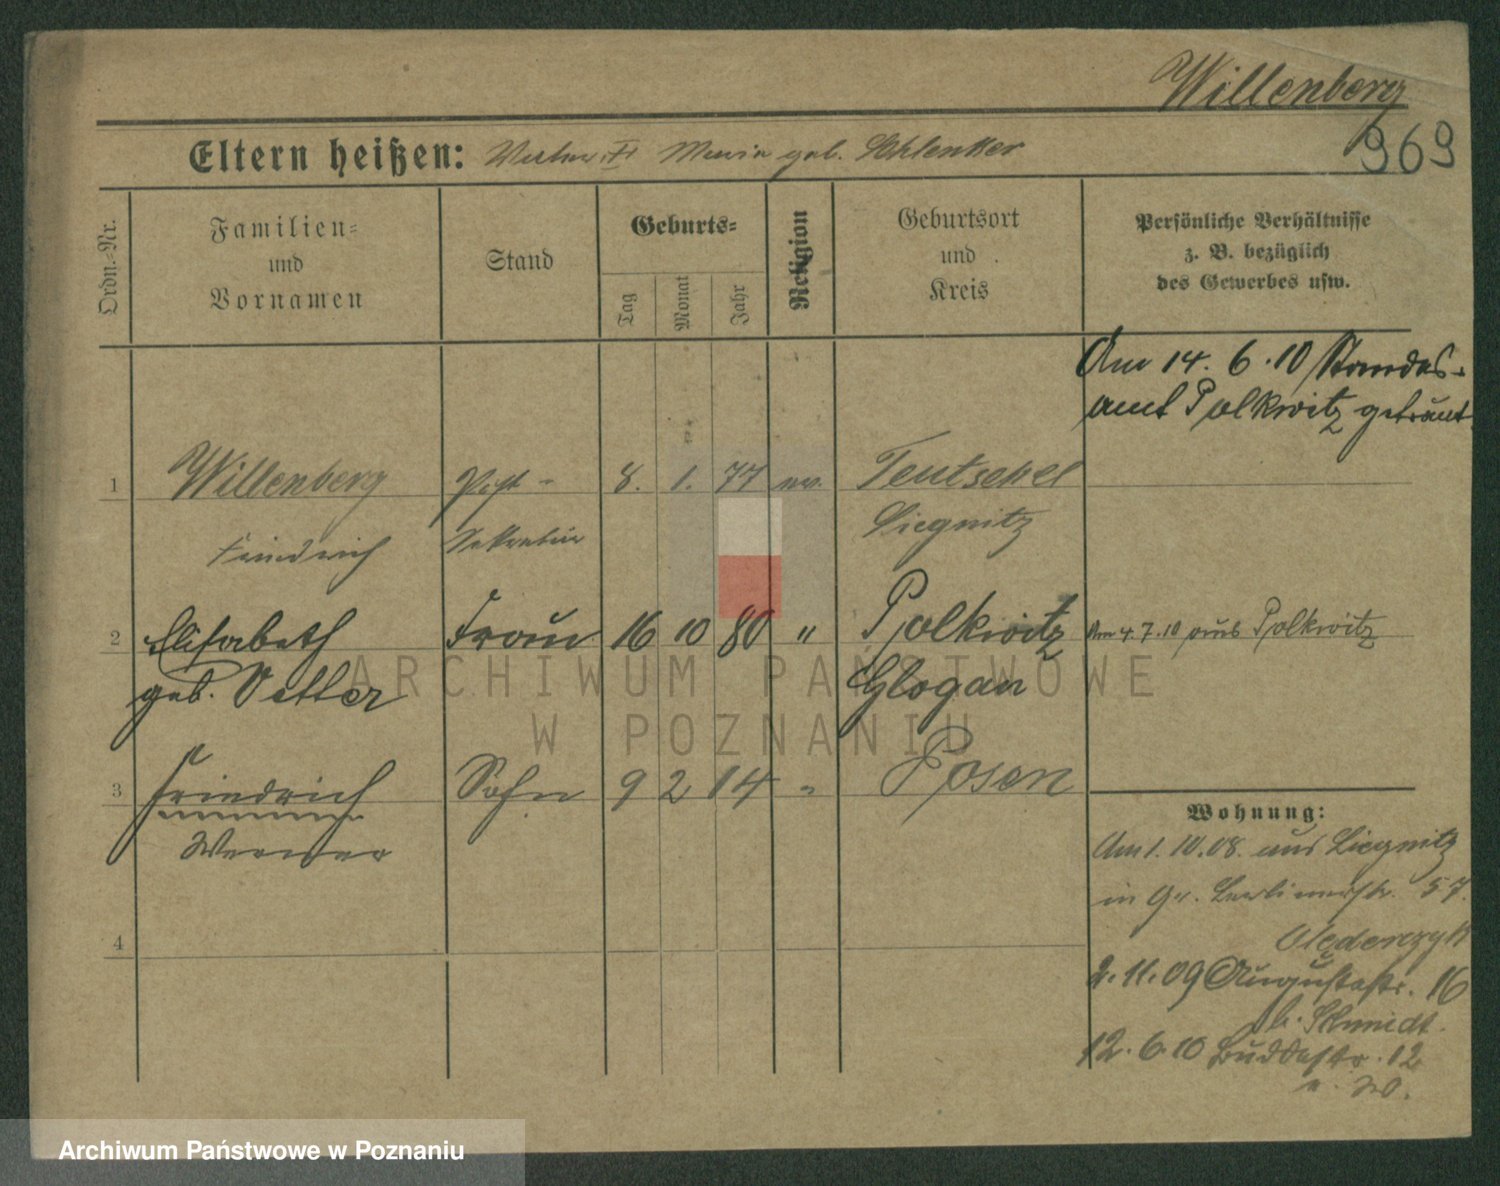 Willenberg
969
Eltern heißen: Maria geb. Schlenker
Ordn.-Nr.
Familien-
und
Vornamen
Stand
Geburts-
Tag
Monat
Jahr
Religion
Geburtsort
und
Kreis
Persönliche Verhältnisse
z. B. bezüglich
des Gewerbes usw.
Am 14. 6. 10 Standes-
amt Polkwitz getraut
1 Willenberg Post- 8. 1. 77 ev. Teutschel
Friedrich Sekretär Liegnitz
2 Elisabeth Frau 16 10 80 " Polkwitz Am 4. 7. 10 aus Polkwitz
geb. Glogau
3 Friedrich Sohn 9 2 14 " Posen
Werner
4
Wohnung:
Am 1. 10. 08. aus Liegnitz
in Gr. Berlinerstr. 57.
2. 11. 09 Augustastr. 16
b. Schmidt.
12. 6. 10 Buddestr. 12
ARCHIWUM PAŃSTWOWE
W POZNANIU
Archiwum Państwowe w Poznaniu